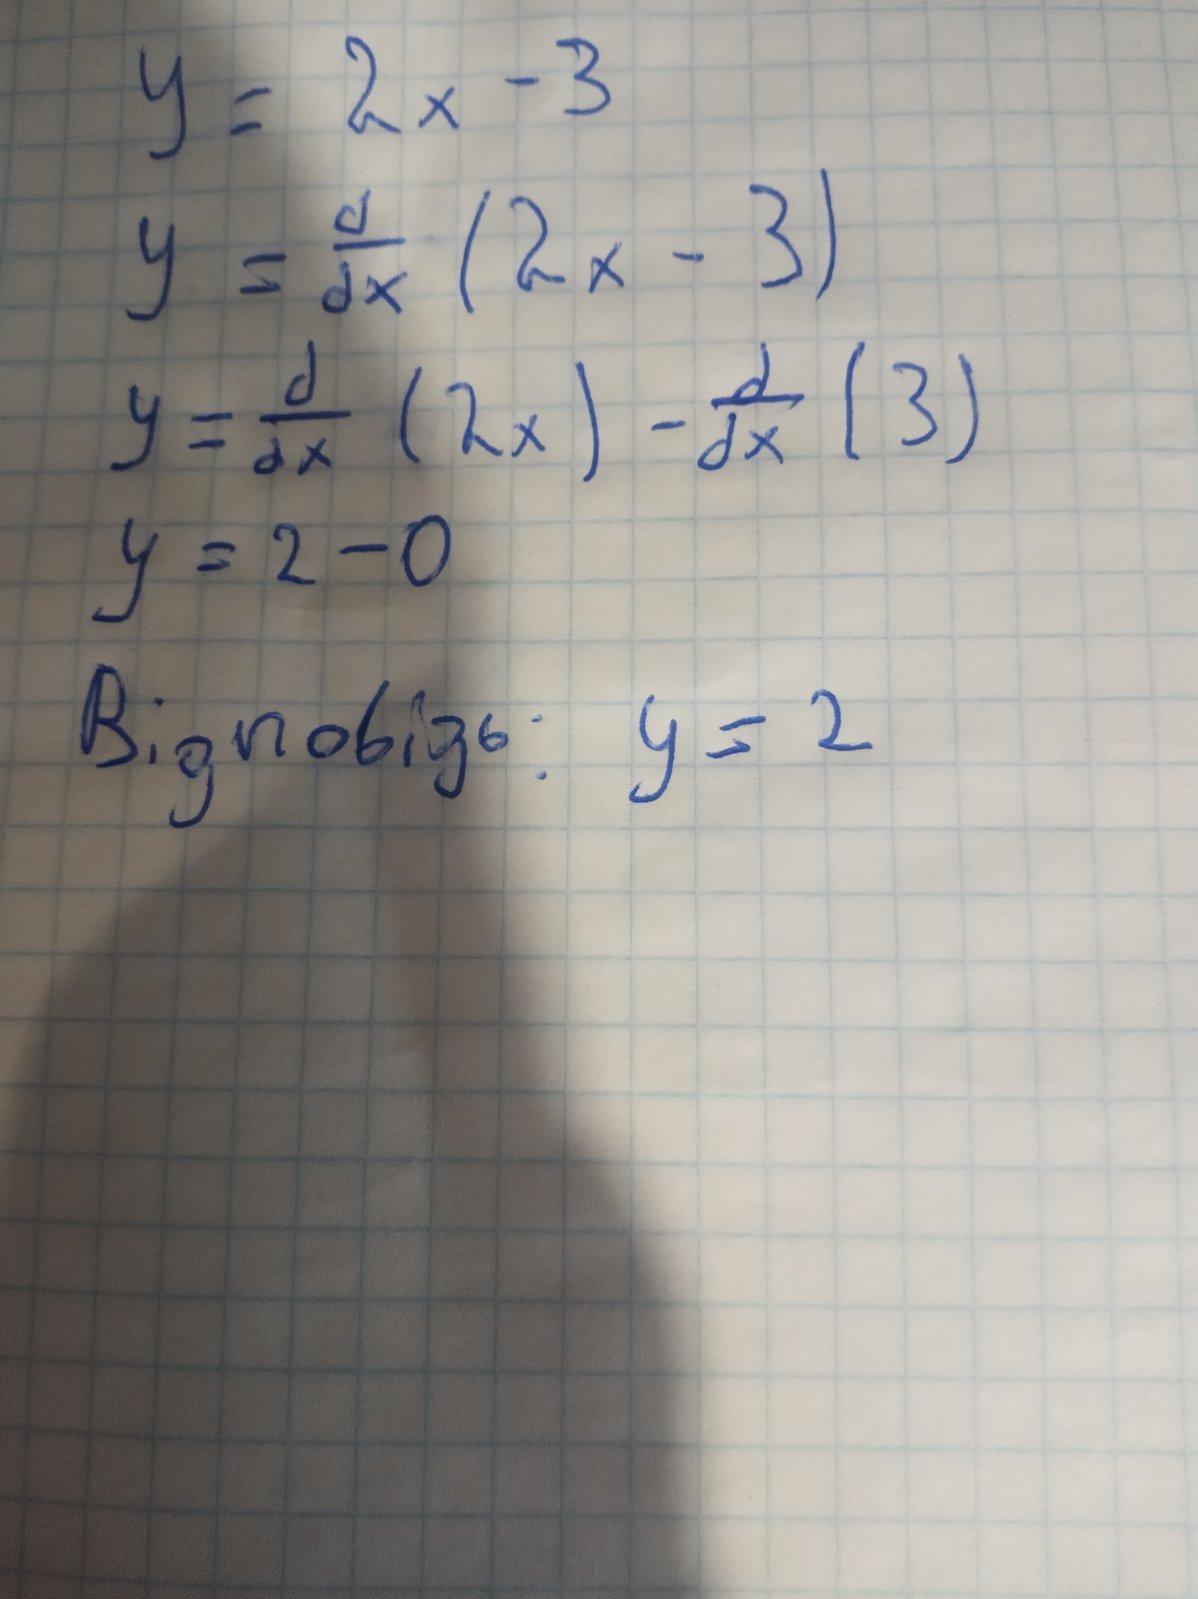 y = 2x - 3
y = d/dx (2x - 3)
y = d/dx (2x) - d/dx (3)
y = 2 - 0
Відповідь: y = 2